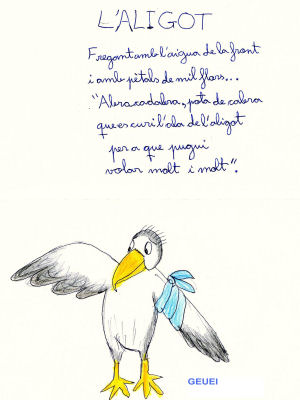 L'ALIGOT
Fregant amb l'aigua de la front
i amb pètals de mil flors...
"Abracadabra, pota de cabra
que es curi l'ala de l'aligot
per a que pugui
volar molt i molt".
GEUEI